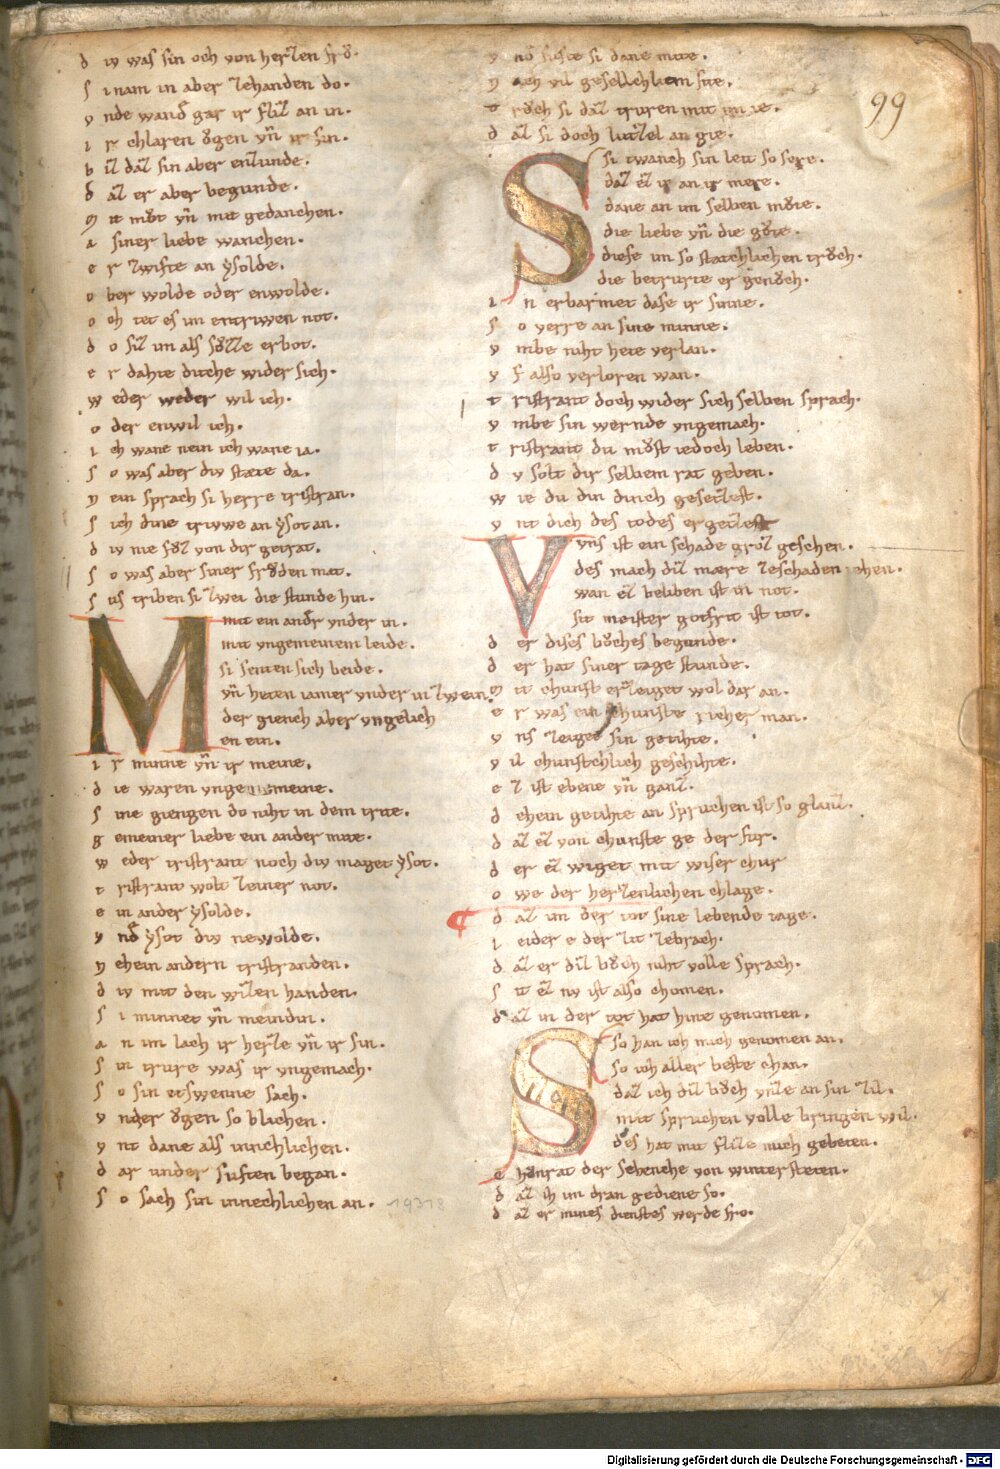 d iv was sin och von herzen fro.
s i nam in aber zehanden do.
v nde wand gar ir fliz an in.
i r chlaren ogen vn ir sin.
b iz daz sin aber enzunde.
d az er aber begunde.
m it mvt vn mit gedanchen.
a n siner liebe wanchen.
e r zwifte an ysolde.
o ber wolde oder enwolde.
o ch tet es im entriwen not.
d o siz im als svzze erbot.
e r dahte diche wider sich.
w eder weder wil ich.
o der enwil ich.
i ch wane nein ich wane ia.
s o was aber div stæte da.
n ein sprach si herre tristran.
s ich dine triwe an ysot an.
d iv nie fvz von dir getrat.
s o was aber siner froden mat.
s us triben si zwei die stunde hin.
M mit ein andr vnder in.
mit vngemeinem leide.
si seniten sich beide.
vn heten iamer vnder in zwein.
der giench aber vngelich
en ein.
i r minne vn ir meine.
d ie waren vngemeine.
s ine giengen do niht in dem trite.
g emeiner liebe ein ander mite.
w eder tristrant noch div maget ysot.
t ristrant wolt zeiner not.
e in ander ysolde.
v nd ysot div newolde.
n ehein andern tristranden.
d iv mit den wizen handen.
s i minnet vn meindin.
a n im lach ir herze vn ir sin.
s in trure was ir vngemach.
s o sin etswenne sach.
v nder ogen so blichen.
v nt dane als innchlichen.
d ar under suften began.
s o sach sin innechlichen an.
19318
v nd sufte si dane mite.
n ach vil gesellichliem site.
t rvch si daz truren mit im ie.
d az si doch luzzel an gie.
99
S si twanch sin leit so sere.
daz ez ir an ir mere.
dane an im selben mvte.
die liebe vn die gvte.
diese im so stætchlichen trvch.
die betrurte er genvch.
i n erbarmet dase ir sinne.
s o verre an sine minne.
v mbe niht hete verlan.
v f also verloren wan.
t ristrant doch wider sich selben sprach.
v mbe sin wernde vngemach.
t ristrant du mvst iedoch leben.
d v solt dir selbem rat geben.
w ie du din dinch gesetzest.
v nt dich des todes ergetzest
V vns ist ein schade groz geschen.
des mach diz mære zeschaden iehen.
wan ez beliben ist in not.
sit meister gotfrit ist tot.
d er dises bvches begunde.
d er hat siner tage stunde.
m it chunst erzeiget wol dar an.
e r was ein chunste richer man.
v ns zeiget sin getihte.
v il chunstchlich geschihte.
e z ist ebene vn ganz.
d ehein getihte an spruchen ist so glanz.
d az ez von chunste ge der fur.
d er ez wiget mit wiser chur
o we der herzenlichen chlage.
d az im der tot sine lebende tage.
l eider e der zit zebrach.
d az er diz bvch niht volle sprach.
s it ez nv ist also chomen.
d az in der tot hat hine genomen.
S so han ich mich genomen an.
so ich aller beste chan.
daz ich diz bvch vnze an sin zil.
mit spruchen volle bringen wil.
des hat mit flize mich gebeten.
c hvnrat der schenche von wintersteten.
d az ih im dran gediene so.
d az er mines dienstes werde fro.
Digitalisierung gefördert durch die Deutsche Forschungsgemeinschaft - DFG